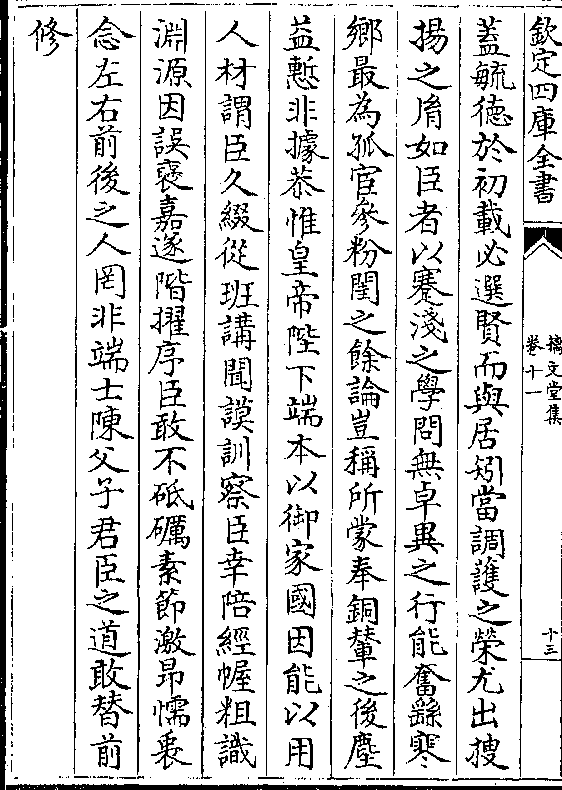 欽定四庫全書
摛文堂集
卷十一
十三
蓋毓德於初載必選賢而與居矧當調護之榮尤出捜
揚之㫺如臣者以蹇淺之學問無卓異之行能奮繇寒
鄉最為孤宦參粉闈之餘論豈稱所蒙奉銅輦之後塵
益慙非據恭惟皇帝陛下端本以御家國因能以用
人材謂臣久綴從班講聞謨訓察臣幸陪經幄粗識
淵源因誤褒嘉遂階擢序臣敢不砥礪素節激昂懦衷
念左右前後之人罔非端士陳父子君臣之道敢替前
修